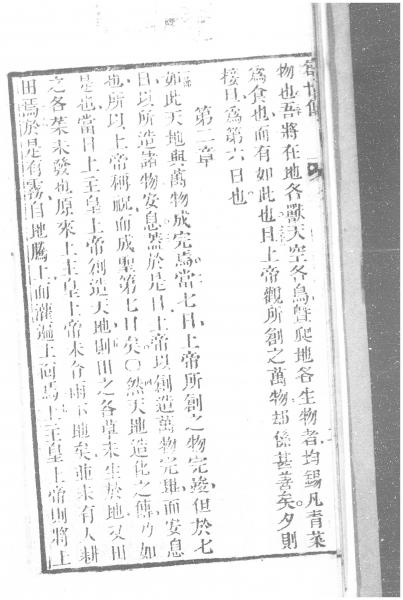 物也吾將在地各獸天空各鳥暨爬地各生物者均錫凡青菜
爲食也而有如此也且上帝觀所創之萬物却係甚善矣夕則
接旦爲第六日也
第二章
如此天地與萬物成完焉當七日上帝所創之物完竣但於七
日以所造諸物安息蓋於是日上帝以創造萬物完而安息
也所以上帝稱祝而成聖第七日矣〇然天地造化之傳乃如
是也當日上主皇上帝創造天地則田之各草未生於地又田
之各菜未發也原來上主皇上帝未令雨下地矣並未有人耕
田焉於是有霧自地騰上而灌遍土面焉上主皇上帝則將土